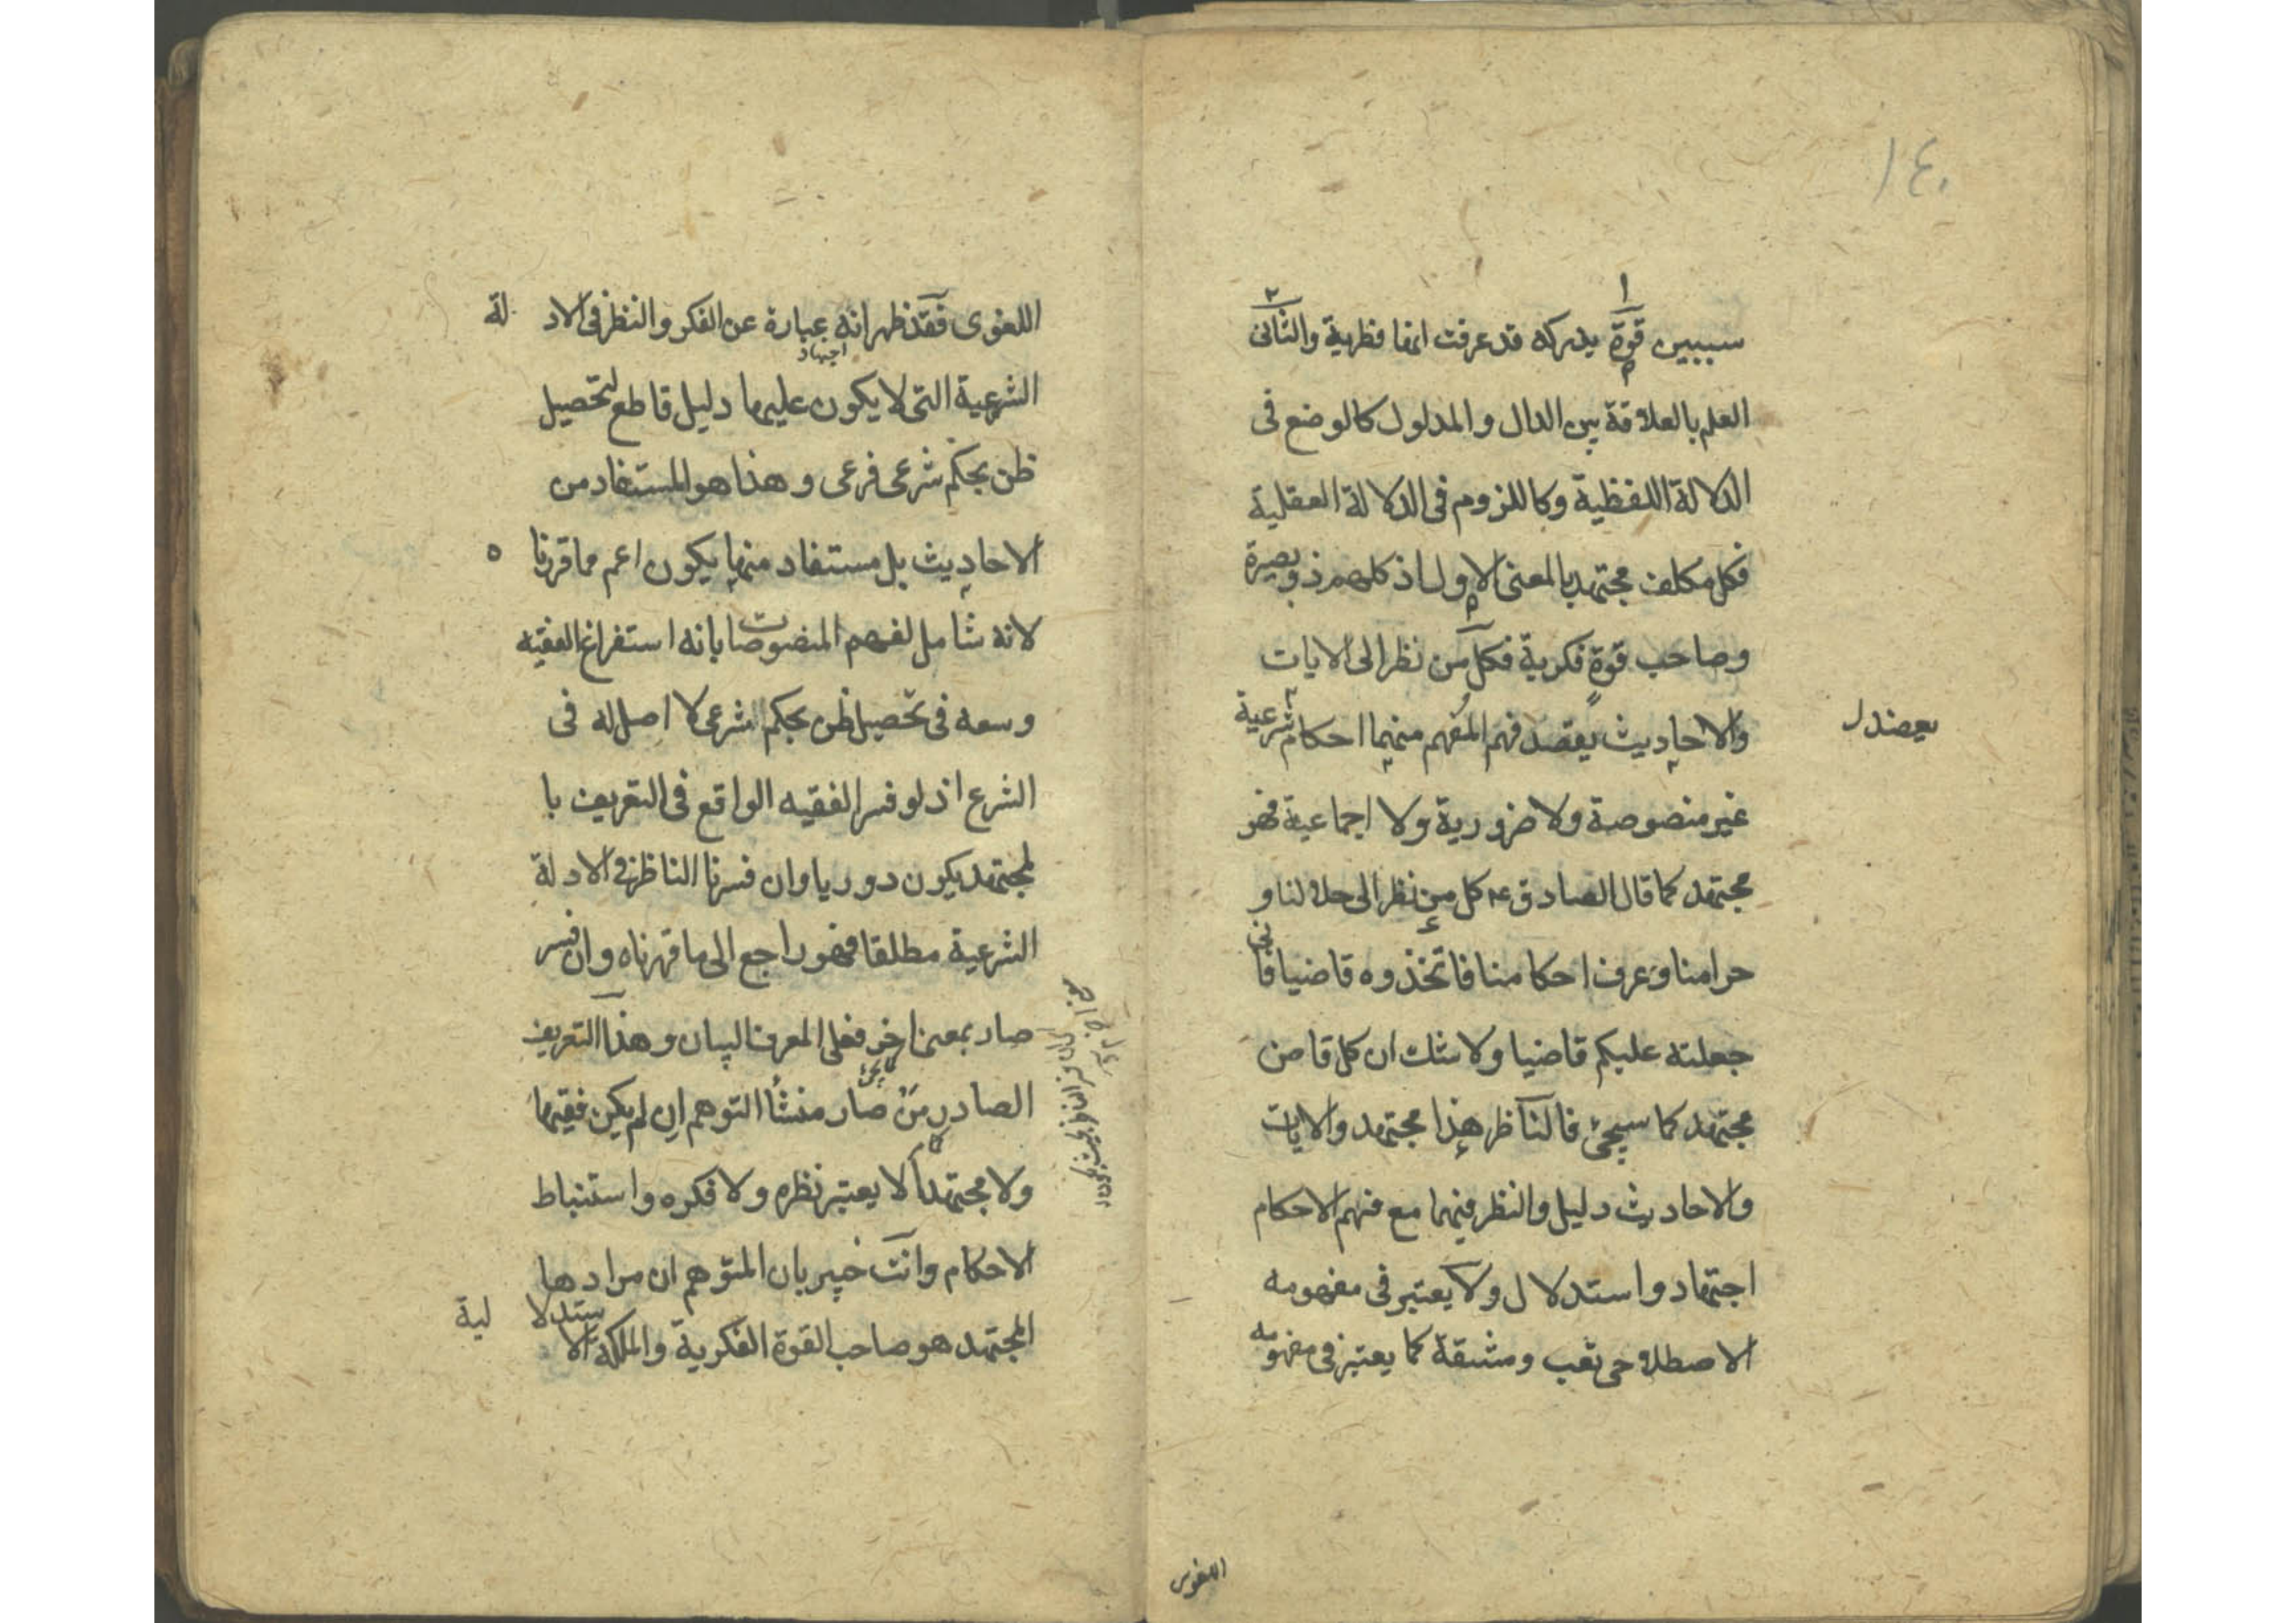 ١٤٠
سببين قوة يدركه قد عرفت انفا فطرية والثانى
العلم بالعلاقة بين الدال والمدلول كالوضع فى
الدلالة اللفظية وكاللزوم فى الدلالة العقلية
فكل مكلف مجتهد بالمعنى الاول اذ كلهم ذو بصيرة
وصاحب قوة فكرية فكل من نظر الى الايات
والاحاديث يقصد فهم المفهم منهما احكام شرعية
غير منصوصة ولا ضرورية ولا اجماعية فهو
مجتهد كما قال الصادق ع كل من نظر الى حلالنا و
حرامنا وعرف احكامنا فاتخذوه قاضيا فانى
جعلته عليكم قاضيا ولا شك ان كل قاض
مجتهد كما سيجئ فالناظر هذا مجتهد والايات
والاحاديث دليل والنظر فيهما مع فهم الاحكام
اجتهاد واستدلال ولا يعتبر فى مفهومه
الاصطلاحى تعب ومشقة كما يعتبر فى مفهومه
اللغوى
اللغوى فقد ظهر انه عبارة عن الفكر والنظر فى الادلة
اجتهاد
الشرعية التى لا يكون عليها دليل قاطع لتحصيل
ظن بحكم شرعى فرعى وهذا هو المستفاد من
الاحاديث بل مستفاد منها يكون اعم مما قررنا ه
لانه شامل لفهم المنصوصات بانه استفراغ الفقيه
وسعه فى تحصيل ظن بحكم شرعى لا اصل له فى
الشرع اذ لو فسر الفقيه الواقع فى التعريف با
لمجتهد يكون دوريا وان فسرنا الناظر فى الادلة
الشرعية مطلقا فهو راجع الى ما قررناه وان فسر
صار بمعنا اخر فعلى المعرف البيان وهذا التعريف
الصادر من صار منشأ التوهم ان لم يكن فقيها
ولا مجتهدا لا يعتبر نظره ولا فكره واستنباط
الاحكام وانت خبير بان المتوهم ان مراد ها
المجتهد هو صاحب القوة الفكرية والملكة الاستدلالية